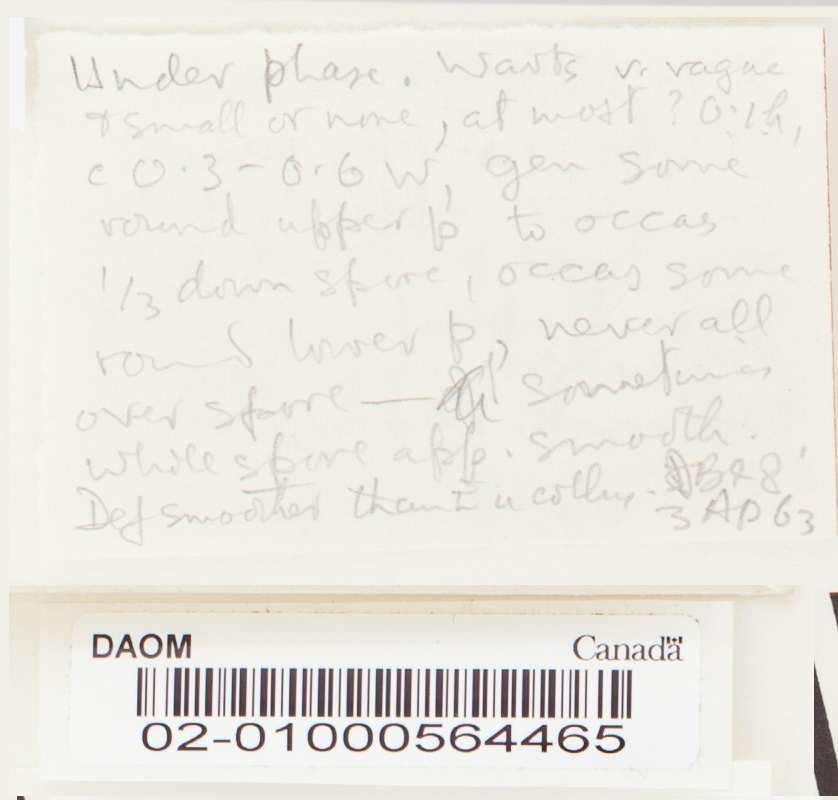 Under phase. Warts v. vague
& small or none, at most ? 0.1 h,
c 0.3 - 0.6 w, gen some
round upper p to occas
1/3 down spore, occas some
round lower p, never all
over spore — sometimes
whole spore app. smooth.
Def smoother than I u collns.
3 AP 63
DAOM
Canada
02-01000564465